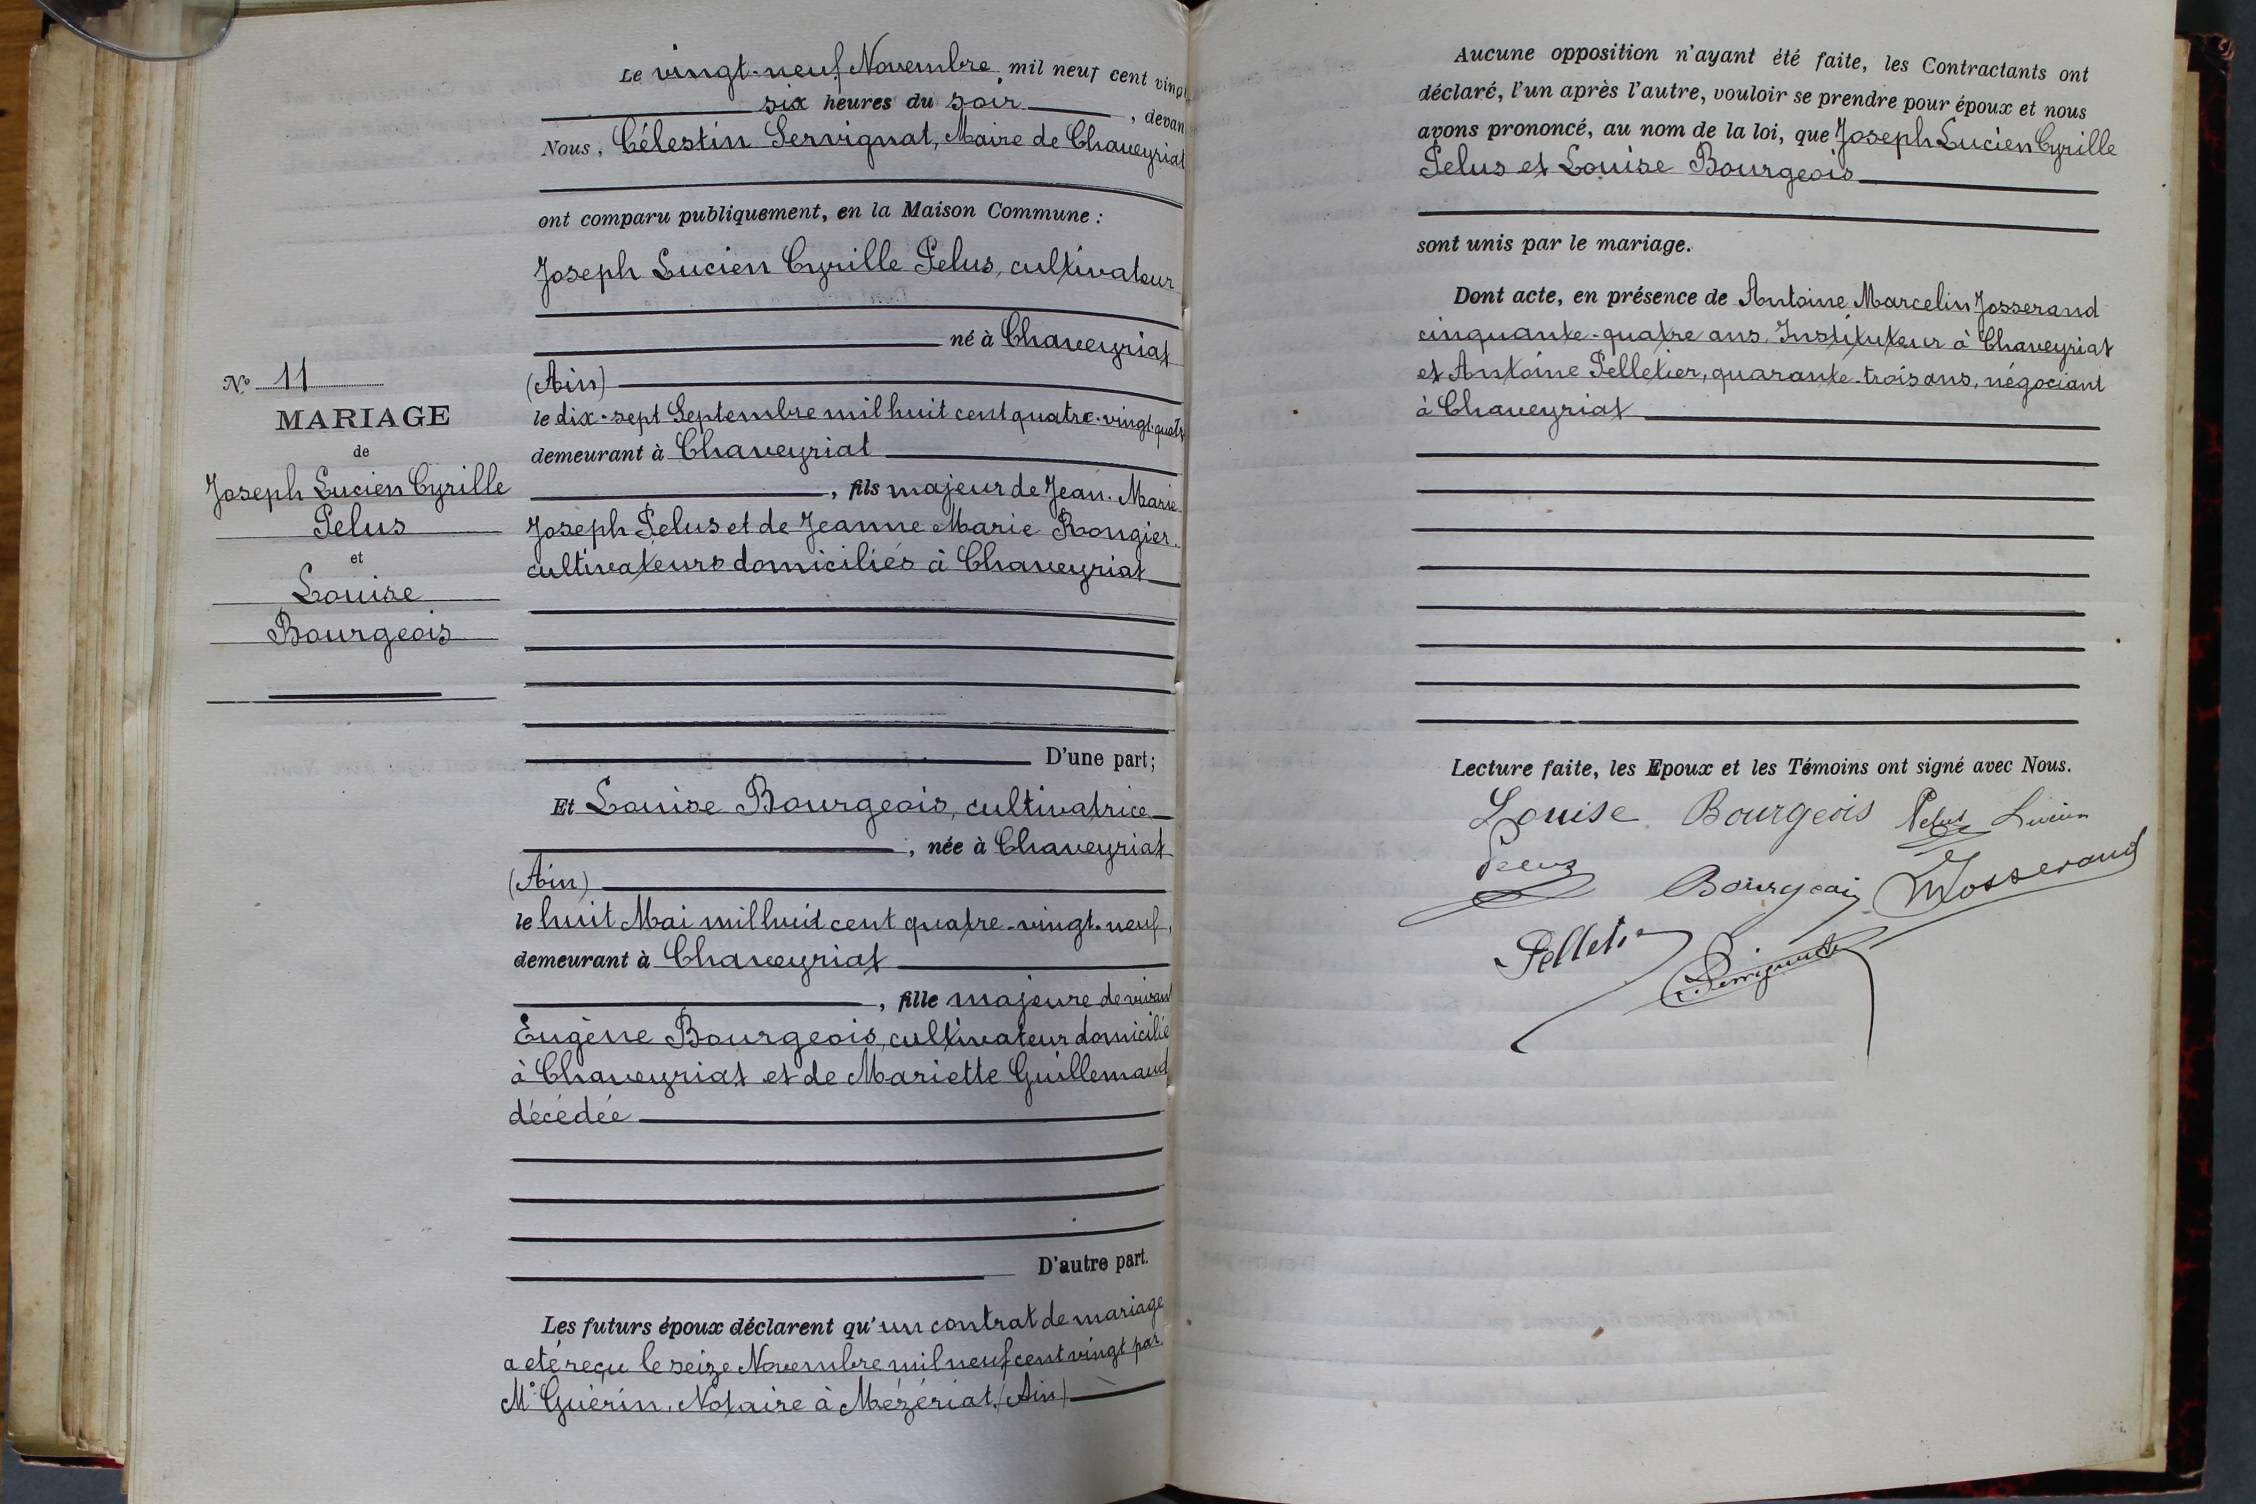 Le vingt-neuf Novembre, mil neuf cent vingt
six heures du soir, devan
Nous, Célestin Servignat, Maire de Chaveyriat
ont comparu publiquement, en la Maison Commune :
Joseph Lucien Cyrille Pelus, cultivateur
né à Chaveyriat
(Ain)
le dix-sept Septembre mil huit cent quatre-vingt-quatr
demeurant à Chaveyriat
, fils majeur de Jean-Marie
Joseph Pelus et de Jeanne Marie Rongier.
cultivateurs domiciliés à Chaveyriat
D'une part;
Et Louise Bourgeois, cultivatrice
, née à Chaveyriat
(Ain)
le huit Mai mil huit cent quatre-vingt-neuf,
demeurant à Chaveyriat
, fille majeure de vivant
Eugène Bourgeois, cultivateur domicilié
à Chaveyriat et de Mariette Guillemaud
décédée
D'autre part.
Les futurs époux déclarent qu'un contrat de mariage
a eté reçu le seize Novembre mil neuf cent vingt par
Me Guérin, Notaire à Mézériat, (Ain)
No 11
MARIAGE
de
Joseph Lucien Cyrille
Pelus
et
Louise
Bourgeois
Aucune opposition n'ayant été faite, les Contractants ont
déclaré, l'un après l'autre, vouloir se prendre pour époux et nous
avons prononcé, au nom de la loi, que Joseph Lucien Cyrille
Pelus et Louise Bourgeois
sont unis par le mariage.
Dont acte, en présence de Antoine Marcelin Josserand
cinquante-quatre ans, Instituteur à Chaveyriat
et Antoine Pelletier, quarante-trois ans, négociant
à Chaveyriat
Lecture faite, les Epoux et les Témoins ont signé avec Nous.
Louise Bourgeois Pelus Lucien
Pelus Bourgeois Josserand
Pelletier Servignat